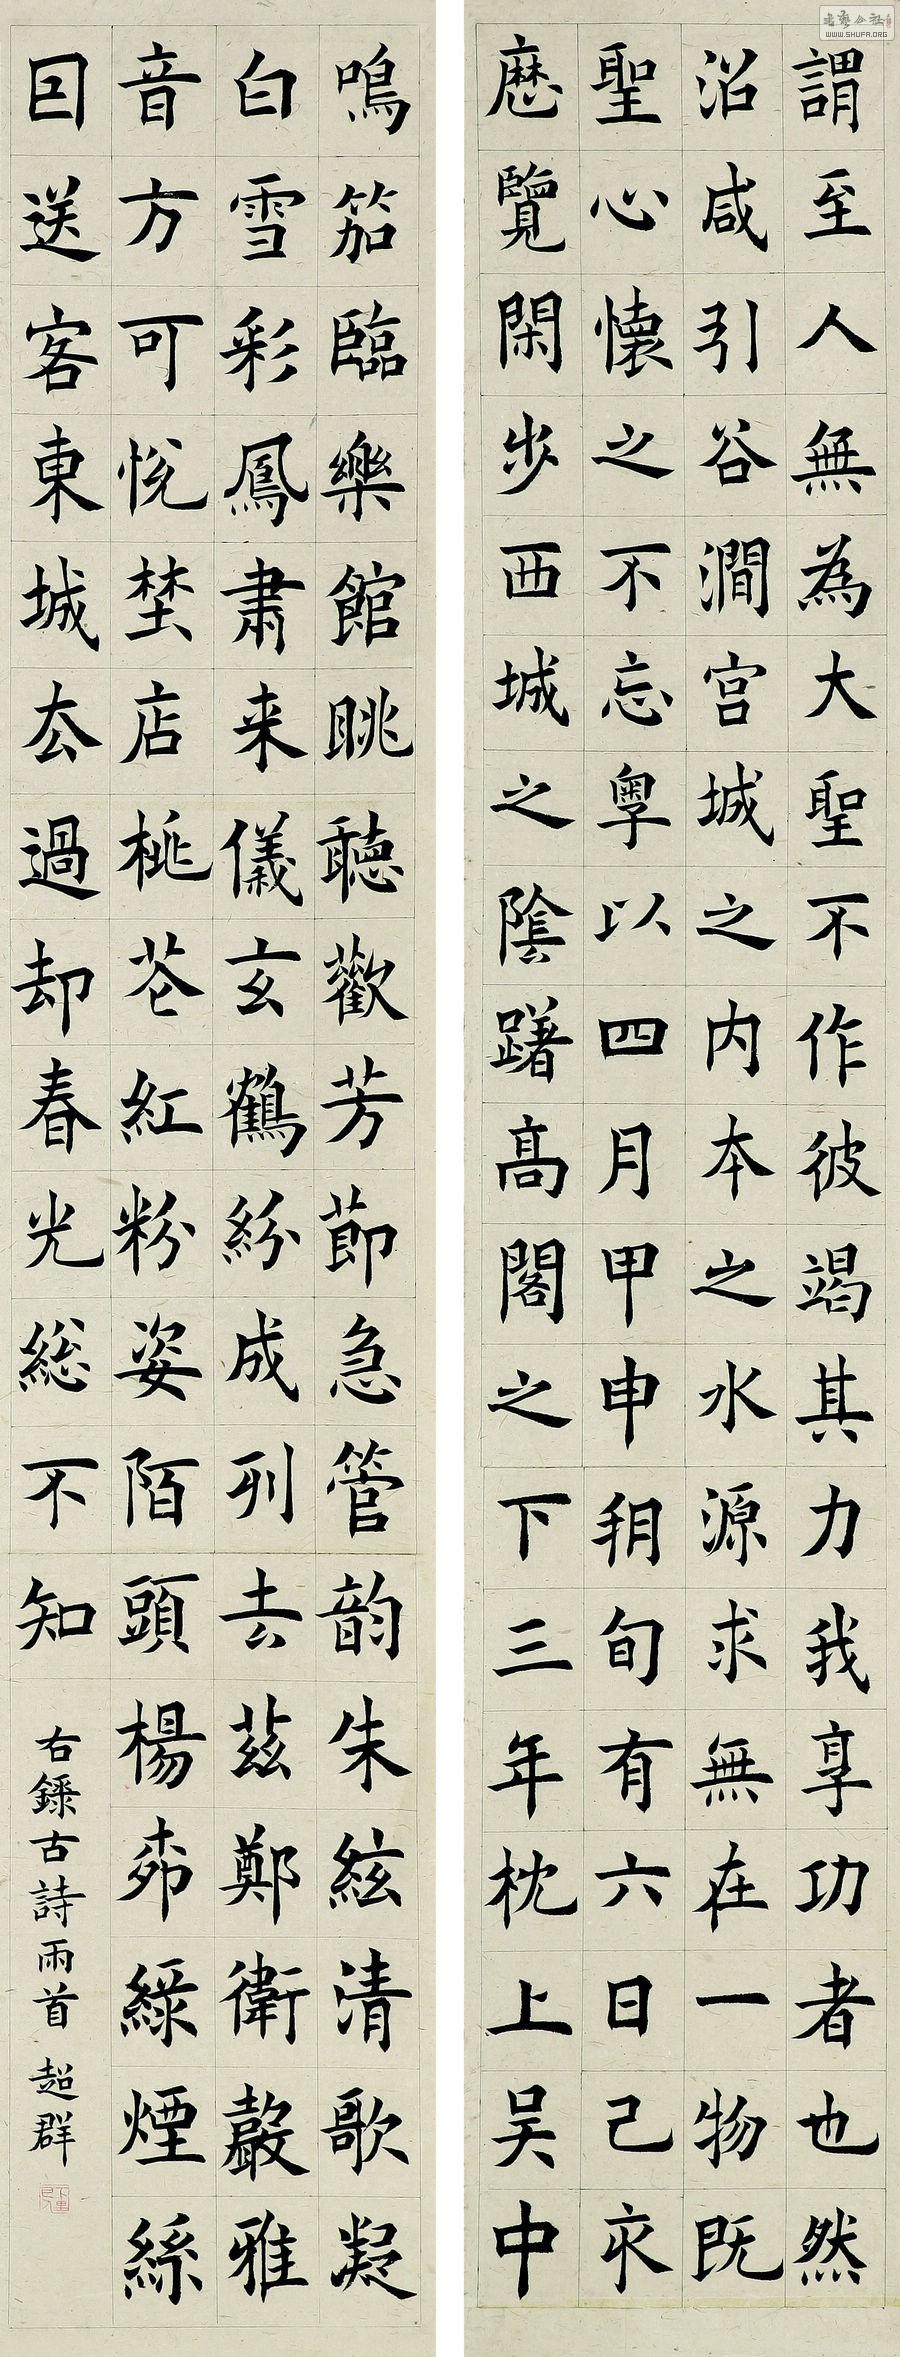 謂至人無為大聖不作彼竭其力我享功者也然
沿咸引谷澗宮城之内本之水源求無在一物既
聖心懷之不忘粤以四月甲申朔旬有六日己亥
歷覽閑步西城之陰躇高閣之下三年枕上吴中
鳴笳臨樂館眺聽歡芳節急管韵朱絃清歌凝
白雪彩鳳肅来儀玄鶴紛成列去兹鄭衛聲雅
音方可悅埜店桃花紅粉姿陌頭楊柳緑煙絲
囙送客東城去過却春光総不知
右録古詩兩首 超群
书艺公社
WWW.SHUFA.ORG